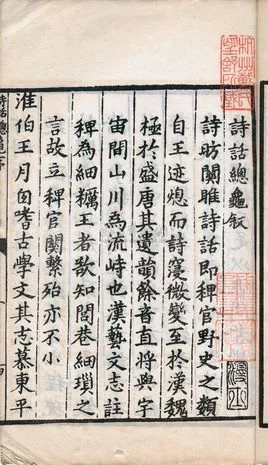 詩話總龜敘
詩昉關雎詩話即稗官野史之類
自王迹熄而詩寖微變至於漢魏
極於盛唐其遺韻餘音直將與宇
宙間山川為流峙也漢藝文志註
稗為細糲王者欲知閭巷細瑣之
言故立稗官關繫殆亦不小
淮伯王月窗嗜古學文其志慕東平
詩話總龜序